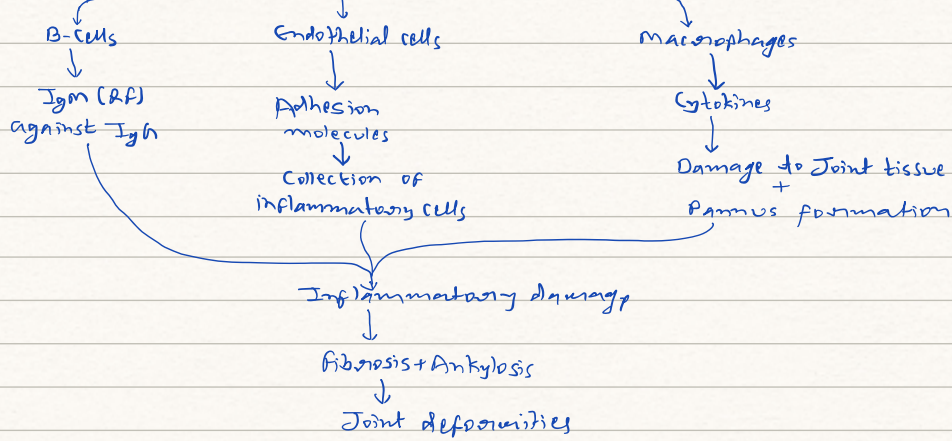 B-Cells
IgM (RF)
against IgG
Endothelial cells
Adhesion
molecules
Collection of
inflammatory cells
Macrophages
Cytokines
Damage to Joint tissue
+
Pannus formation
Inflammatory damage
Fibrosis + Ankylosis
Joint deformities